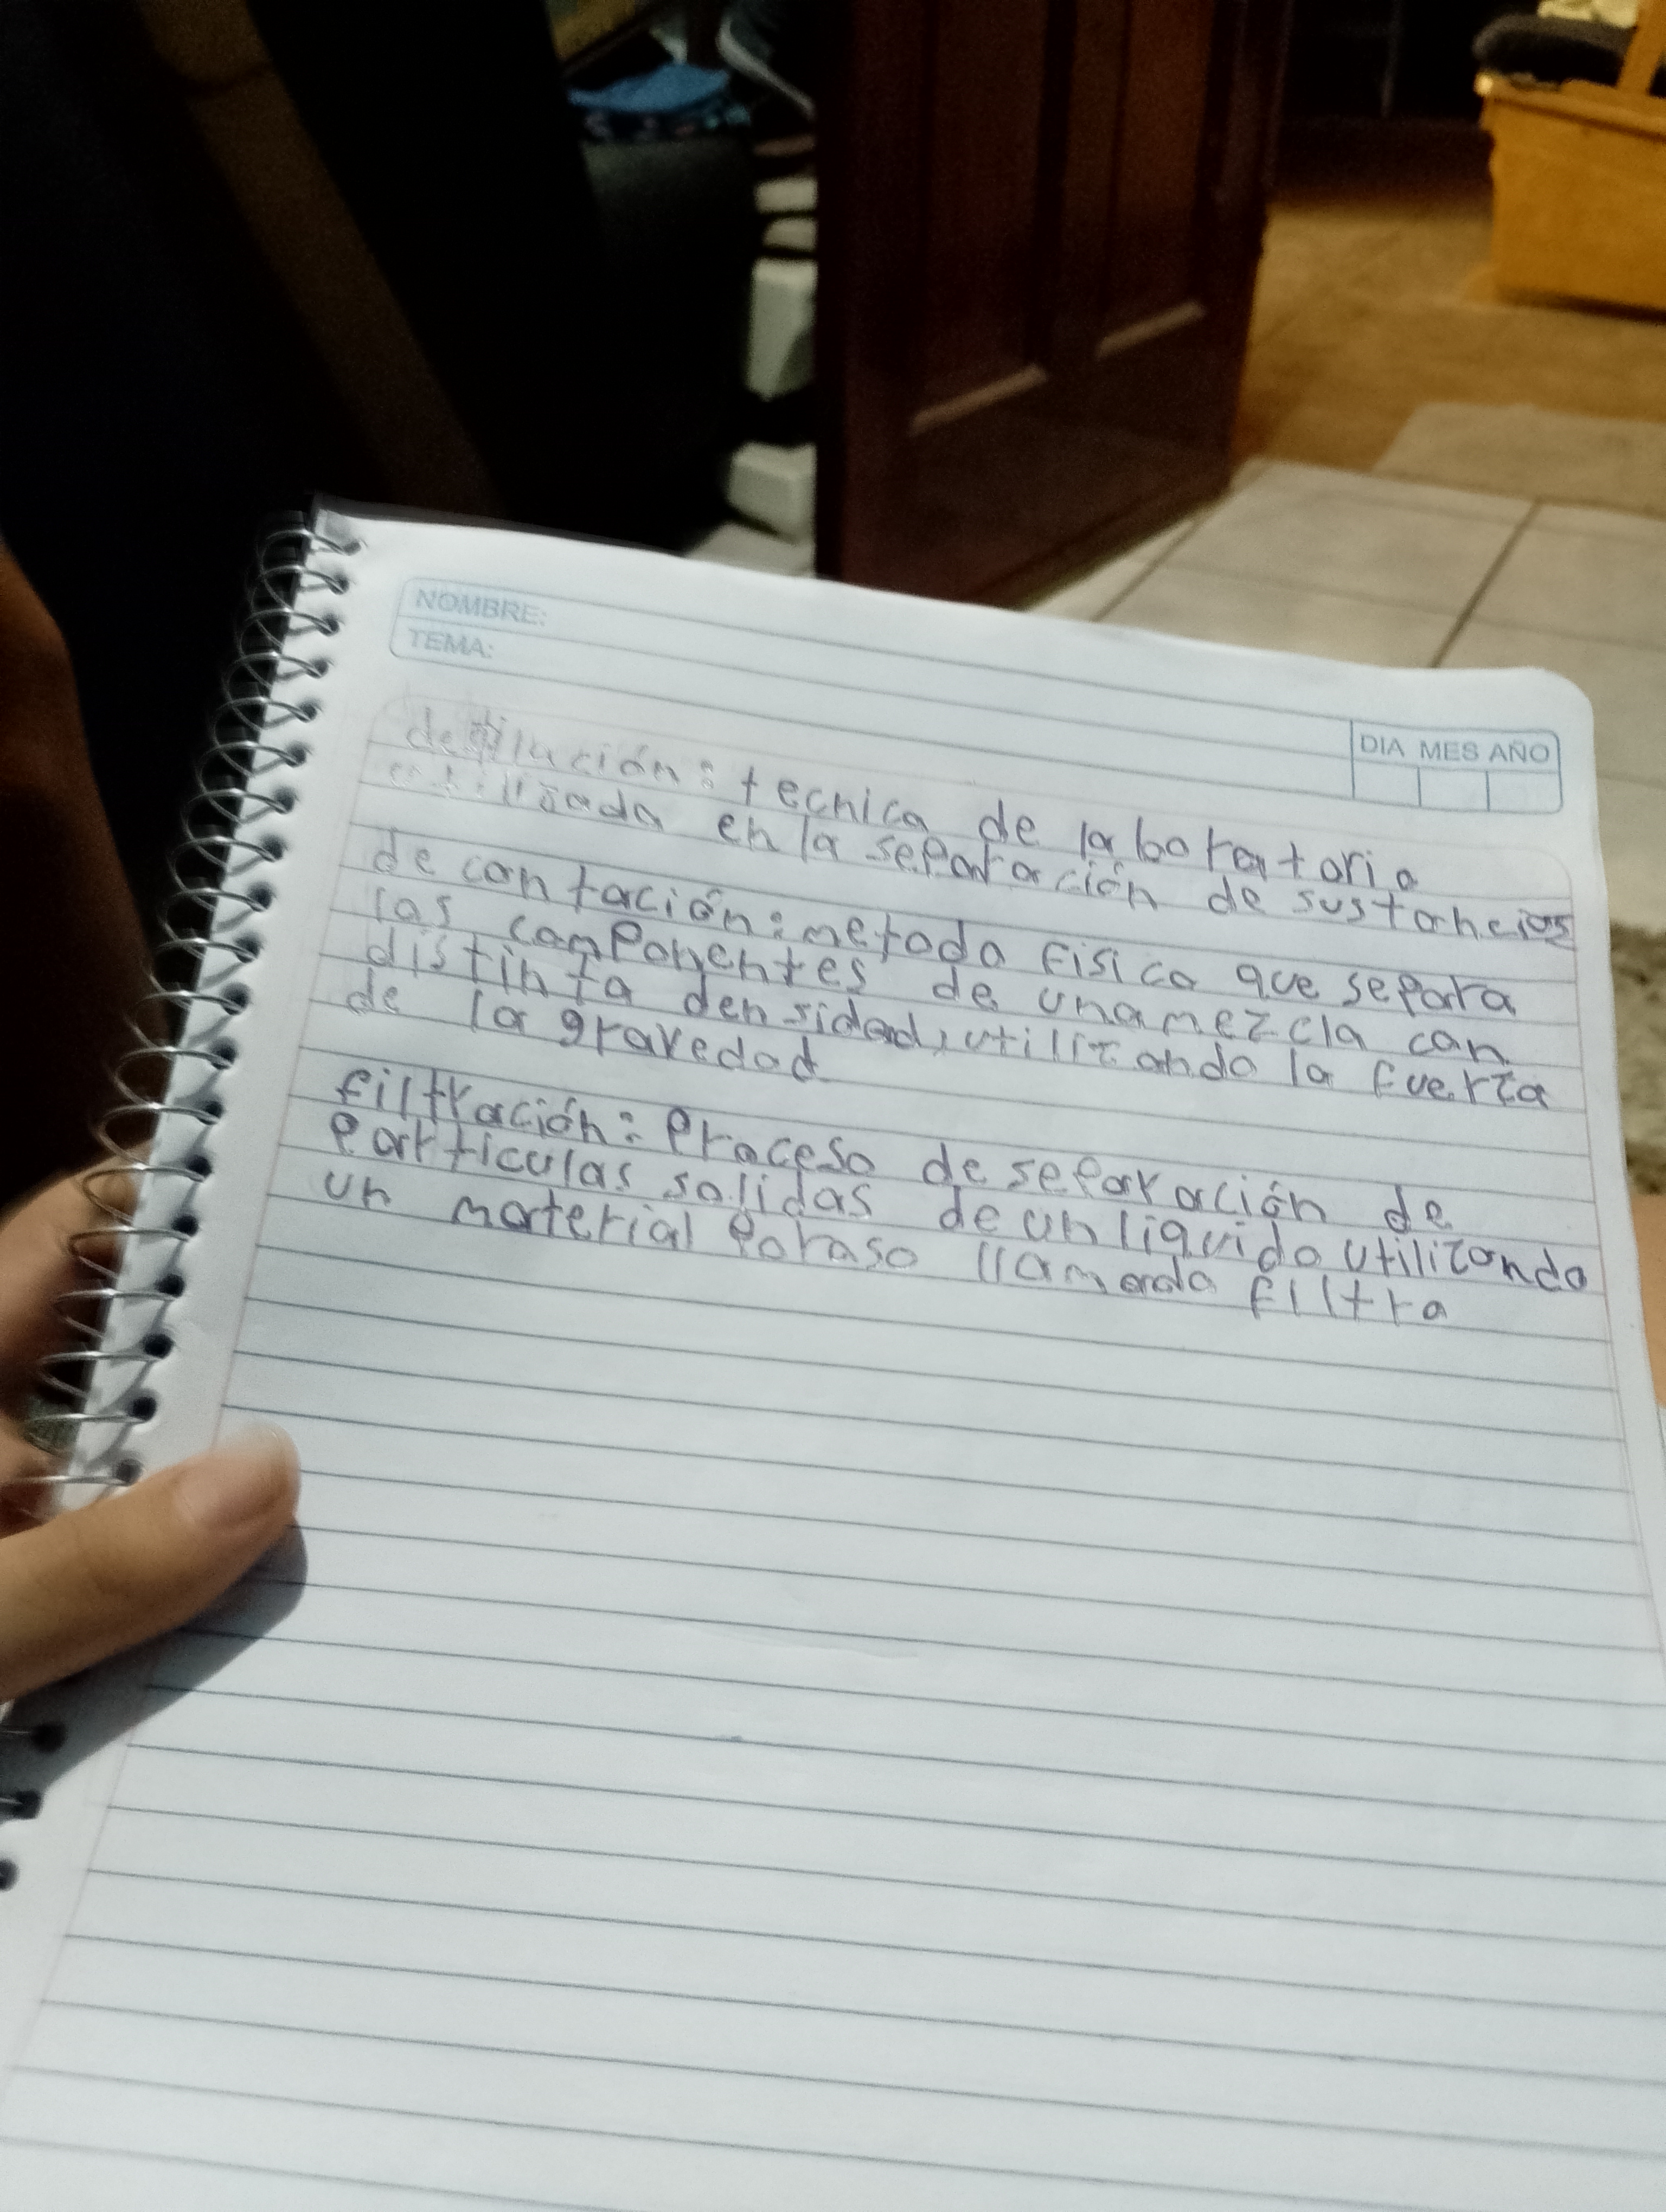 NOMBRE:
TEMA:
DIA MES AÑO
destilación: tecnica de laboratorio
utilizada en la separación de sustancias
decantación: metodo fisico que separa
los componentes de una mezcla con
distinta densidad, utilizando la fuerza
de la gravedad
filtración: Proceso de separación de
Particulas solidas de un liquido utilizando
un material Poroso llamado filtro